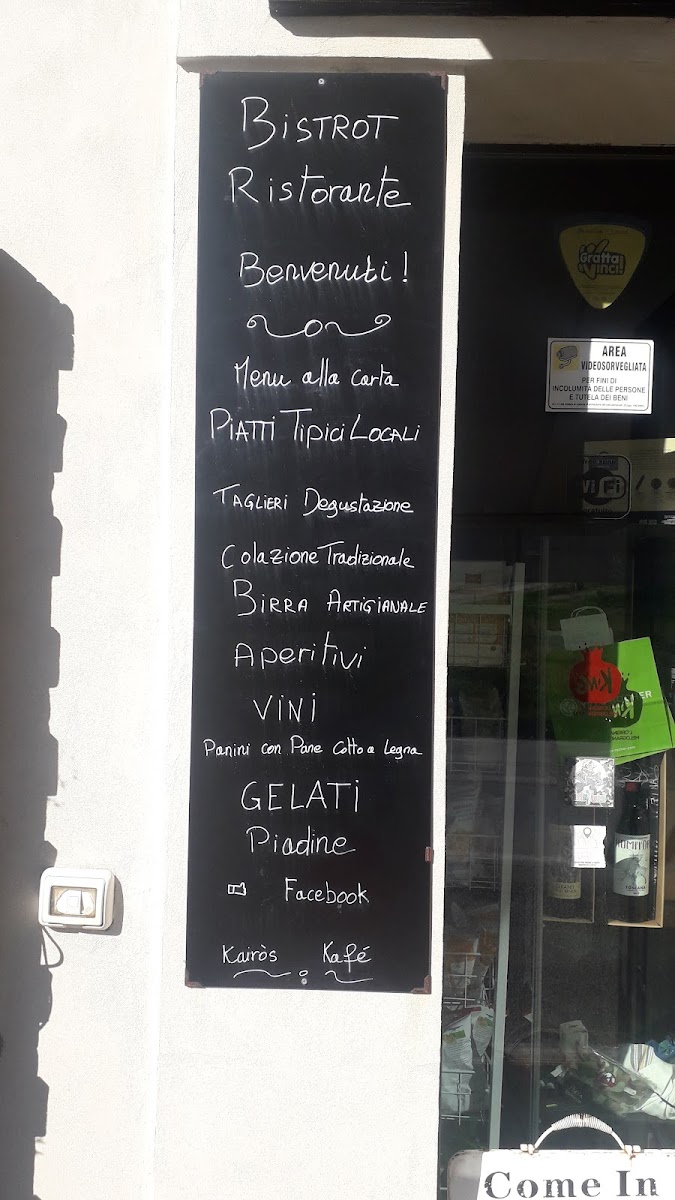 BISTROT
Ristorante
Benvenuti!
Menu alla carta
PIATTI TIPICI LOCALI
TAGLIERI Degustazione
Colazione Tradizionale
BIRRA ARTIGIANALE
Aperitivi
VINI
Panini con Pane Cotto a Legna
GELATI
Piadine
Facebook
Kairòs Kafé
Gratta
Vinci!
AREA
VIDEOSORVEGLIATA
PER FINI DI
INCOLUMITÀ DELLE PERSONE
E TUTELA DEI BENI
Wi Fi
Come In